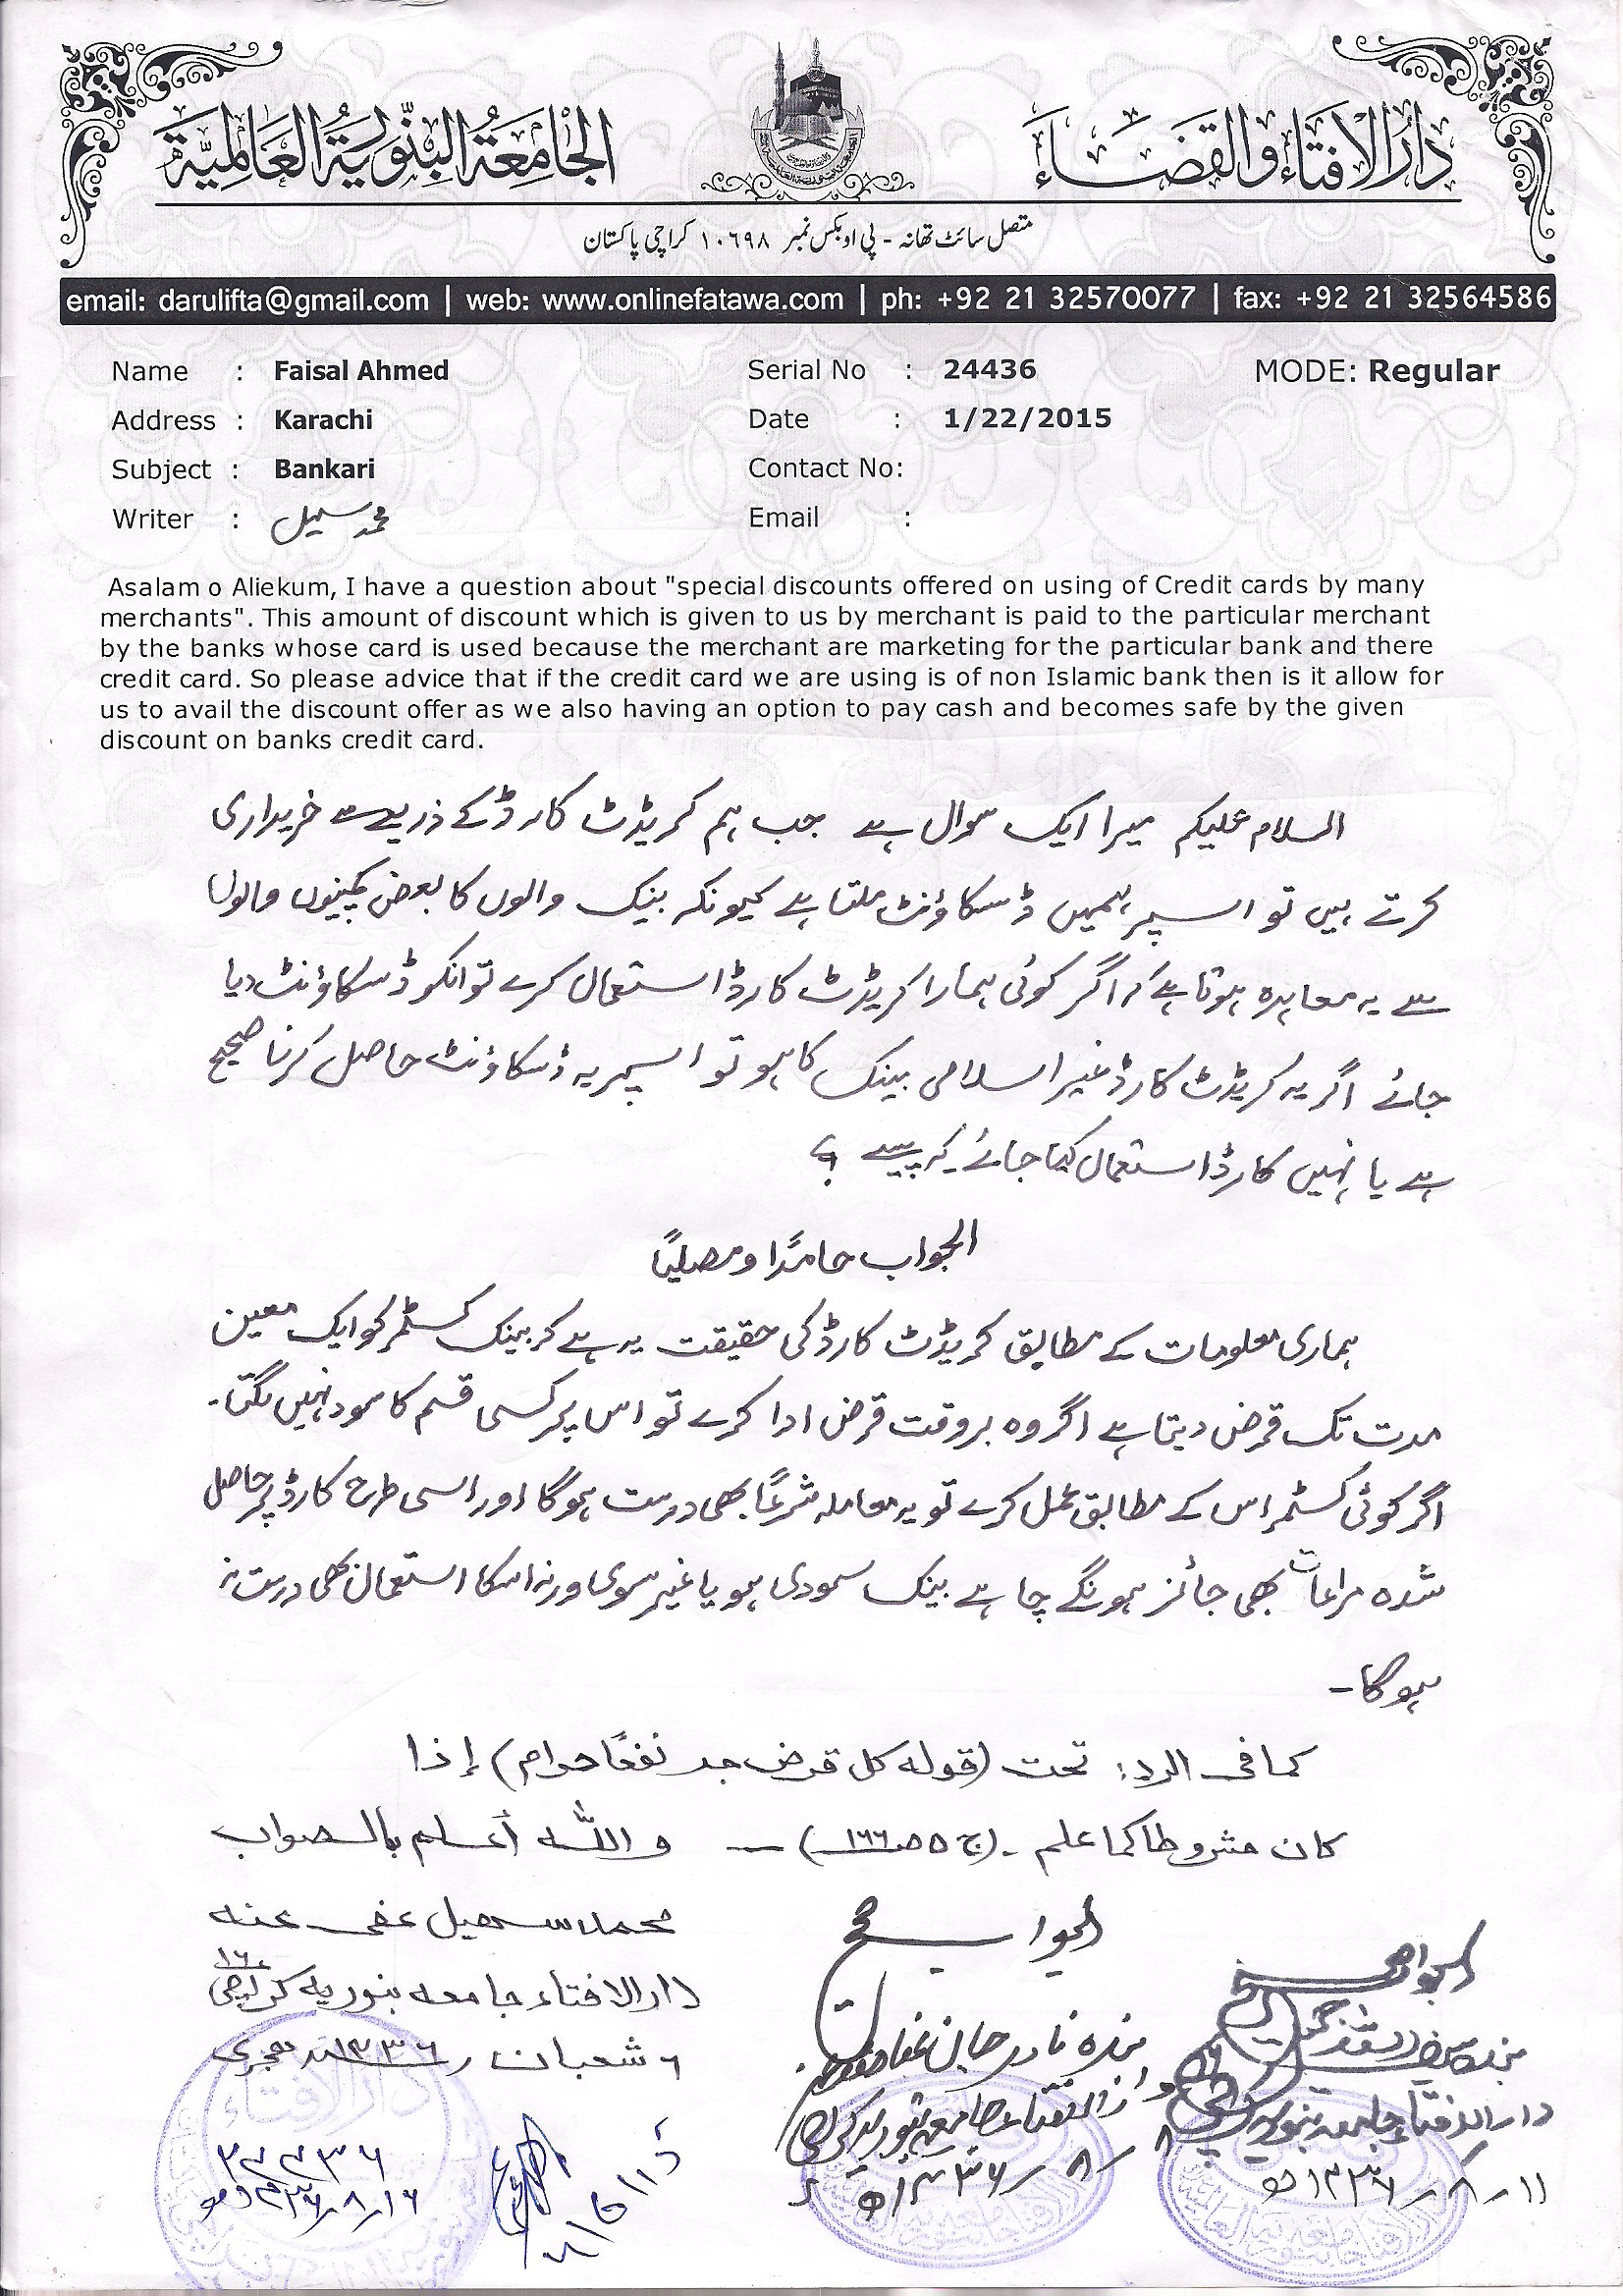 دارُالافتاء والقضَاء
الجامعَةُ البنّوريَّةُ العَالميَّة
متصل سائٹ تھانہ - پی او بکس نمبر ۱۰٦۹۸ کراچی پاکستان
email: darulifta@gmail.com | web: www.onlinefatawa.com | ph: +92 21 32570077 | fax: +92 21 32564586
Name : Faisal Ahmed Serial No : 24436 MODE: Regular
Address : Karachi Date : 1/22/2015
Subject : Bankari Contact No:
Writer : محمد سہیل Email :
Asalam o Aliekum, I have a question about "special discounts offered on using of Credit cards by many
merchants". This amount of discount which is given to us by merchant is paid to the particular merchant
by the banks whose card is used because the merchant are marketing for the particular bank and there
credit card. So please advice that if the credit card we are using is of non Islamic bank then is it allow for
us to avail the discount offer as we also having an option to pay cash and becomes safe by the given
discount on banks credit card.
السلام علیکم میرا ایک سوال ہے جب ہم کریڈٹ کارڈ کے ذریعے سے خریداری
کرتے ہیں تو اسپر ہمیں ڈسکاؤنٹ ملتا ہے کیونکہ بینک والوں کا بعض کمپنیوں والوں
سے یہ معاہدہ ہوتا ہے کہ اگر کوئی ہمارا کریڈٹ کارڈ استعمال کرے تو انکو ڈسکاؤنٹ دیا
جائے اگر یہ کریڈٹ کارڈ غیر اسلامی بینک کا ہو تو اسپر یہ ڈسکاؤنٹ حاصل کرنا صحیح
ہے یا نہیں کارڈ استعمال کیا جائے کہ پیسے ؟
الجواب حامدًا ومصلیًا
ہماری معلومات کے مطابق کریڈٹ کارڈ کی حقیقت یہ ہے کہ بینک کسٹمر کو ایک معین
مدت تک قرض دیتا ہے اگر وہ بروقت قرض ادا کرے تو اس پر کسی قسم کا سود نہیں لگتا۔
اگر کوئی کسٹمر اس کے مطابق عمل کرے تو یہ معاملہ شرعًا بھی درست ہوگا اور اسی طرح کارڈ پر حاصل
شدہ مراعات بھی جائز ہونگے چاہے بینک سودی ہو یا غیر سودی ورنہ اسکا استعمال بھی درست نہ
ہوگا۔
کما فی الرد: تحت (قوله کل قرض جر نفعًا حرام) إذا
کان مشروطا کما علم ۔ (ج ۵ ص ۱٦٦) — واللہ أعلم بالصواب
محمد سہیل عفی عنہ
دارالافتاء جامعہ بنوریہ کراچی ۱٦
٦ شعبان ۱۴۳٦ ہجری
الجواب صحیح
بندہ نادر جان
دارالافتاء جامعہ بنوریہ کراچی
۸ / ۸ / ۱۴۳٦ھ
الجواب صحیح
دارالافتاء جامعہ بنوریہ
۱۱ / ۸ / ۱۴۳٦ھ
۲۴۴۳٦